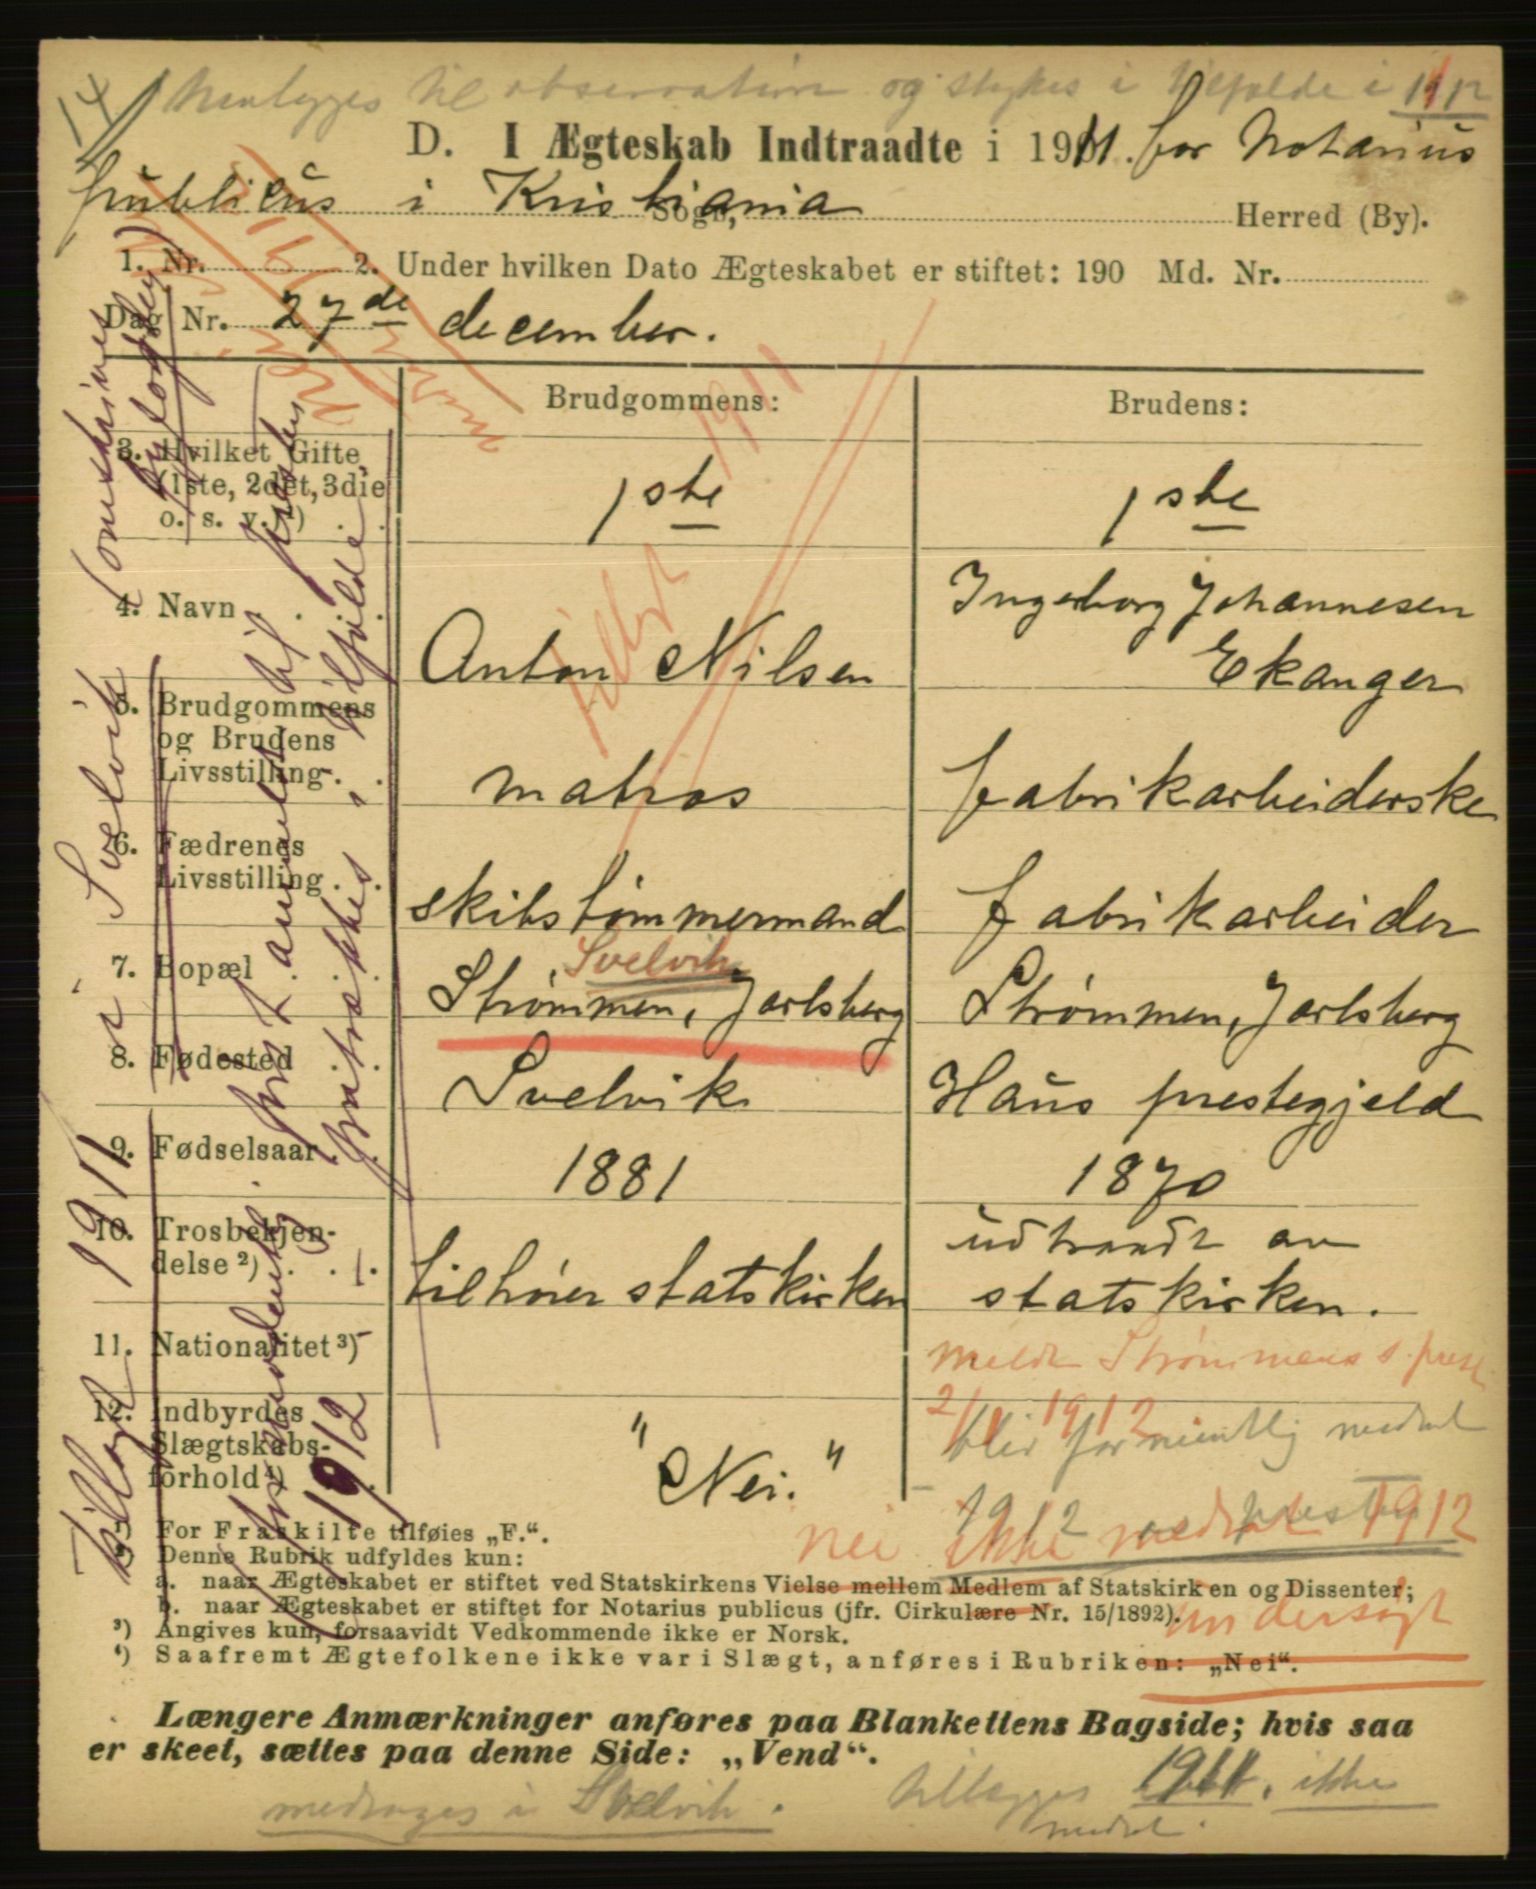 henlægges til observation og stykes i tilfælde i 1912
D. I Ægteskab Indtraadte i 1911. for Notarius
publicus i Kristiania Sogn, Herred (By).
1. Nr. 2. Under hvilken Dato Ægteskabet er stiftet: 190 Md. Nr.
Dag Nr. 27de december.
Brudgommens: Brudens:
3. Hvilket Gifte
(1ste, 2det, 3die
o. s. v. ¹) 1ste 1ste
4. Navn Anton Nilsen Ingeborg Johannesen
Ekanger
5. Brudgommens
og Brudens
Livsstilling matros fabrikarbeiderske
6. Fædrenes
Livsstilling skibstømmermand fabrikarbeider
Svelvik
7. Bopæl Strømmen, Jarlsberg Strømmen, Jarlsberg
8. Fødested Svelvik Haus prestegjeld
9. Fødselsaar 1881 1870
10. Trosbekjen-
delse ²) tilhører statskirken udtraadt av
statskirken.
11. Nationalitet ³)
meldt Strømmens s. prest
2/1 1912
12. Indbyrdes
Slægtskabs-
forhold ⁴) "Nei."
blir formentlig medtat
1912
nei ikke medtat 1912
undersøgt
¹) For Fraskilte tilføies „F.“.
²) Denne Rubrik udfyldes kun:
a. naar Ægteskabet er stiftet ved Statskirkens Vielse mellem Medlem af Statskirken og Dissenter;
b. naar Ægteskabet er stiftet for Notarius publicus (jfr. Cirkulære Nr. 15/1892).
³) Angives kun, forsaavidt Vedkommende ikke er Norsk.
⁴) Saafremt Ægtefolkene ikke var i Slægt, anføres i Rubriken: „Nei“.
Længere Anmærkninger anføres paa Blankettens Bagside; hvis saa
er skeet, sættes paa denne Side: „Vend“.
medtages i Svelvik.
tillægges 1911, ikke
medtat.
Tillagt 1911
Svelvik
1912
tillagt
1911